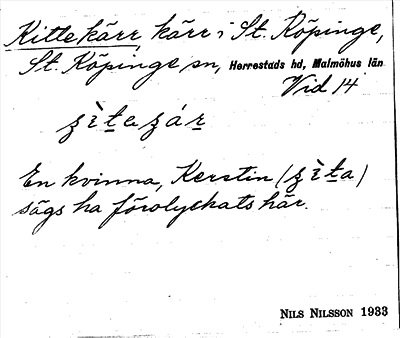 Kittekärr, kärr i St. Köpinge,
St. Köpinge sn, Herrestads hd, Malmöhus län
Vid 14
En kvinna, Kerstin
sägs ha förolyckats här.
NILS NILSSON 1933